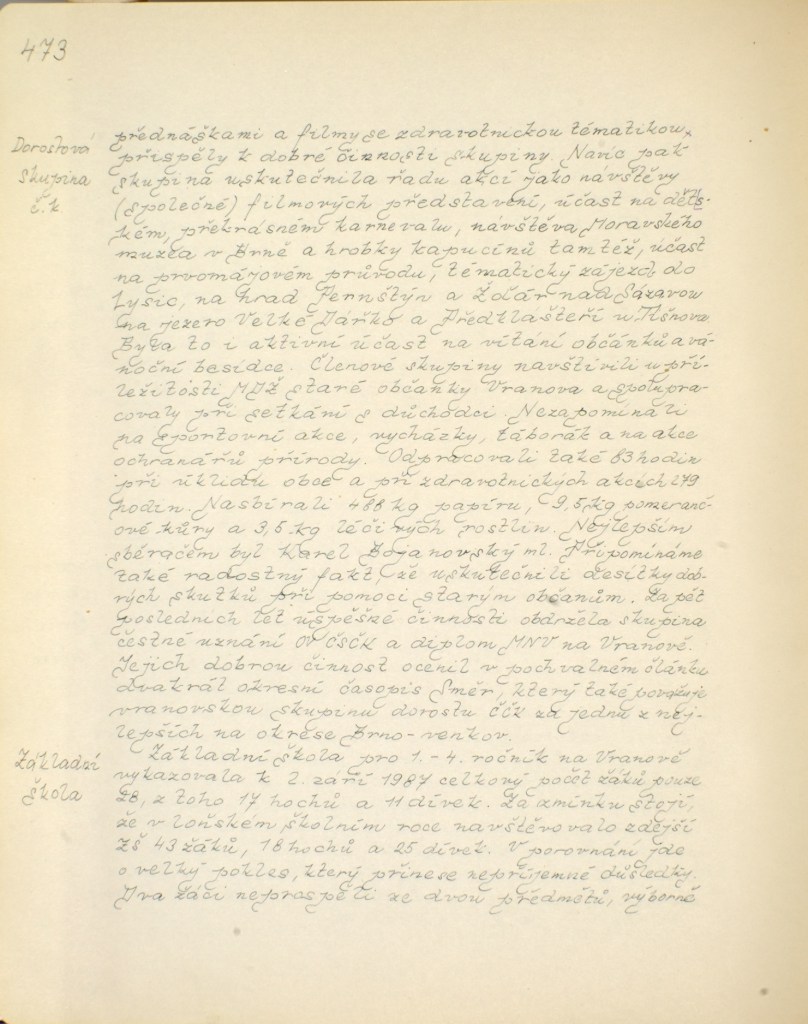 473
Dorostová
skupina
č.k.
přednáškami a filmy se zdravotnickou tématikou,
přispěly k dobré činnosti skupiny. Navíc pak
skupina uskutečnila řadu akcí jako návštěvy
(společné) filmových představení, účast na děts-
kém, překrásném karnevalu, návštěva Moravského
muzea v Brně a hrobky kapucínů tamtéž, účast
na prvomájovém průvodu, tématický zájezd do
Lysic, na hrad Pernštýn a Žďár nad Sázavou
na jezero Velké Dářko a Předklášteří u Tišnova.
Byla to i aktivní účast na vítání občánků a vá-
noční besídce. Členové skupiny navštívili u pří-
ležitosti MDŽ staré občanky Vranova a spolupra-
covaly při setkání s důchodci. Nezapomínali
na sportovní akce, vycházky, táborák a na akce
ochranářů přírody. Odpracovali také 83 hodin
při úklidu obce a při zdravotnických akcích 279
hodin. Nasbírali 488 kg papíru, 9,5 kg pomeranč-
ové kůry a 3,5 kg léčivých rostlin. Nejlepším
sběračem byl Karel Bojanovský ml. Připomínáme
také radostný fakt, že uskutečnili desítky dob-
rých skutků při pomoci starým občanům. Za pět
posledních let úspěšné činnosti obdržela skupina
čestné uznání OV ČSČK a diplom MNV na Vranově.
Jejich dobrou činnost ocenil v pochvalném článku
dvakrál okresní časopis Směr, který také považuje
vranovskou skupinu dorostu ČČK za jednu z nej-
lepších na okrese Brno-venkov.
Základní
škola
Základní škola pro 1.-4. ročník na Vranově
vykazovala k 2. září 1987 celkový počet žáků pouze
28, z toho 17 hochů a 11 dívek. Za zmínku stojí,
že v loňském školním roce navštěvovalo zdejší
ZŠ 43 žáků, 18 hochů a 25 dívek. V porovnání jde
o velký pokles, který přinese nepříjemné důsledky.
Dva žáci neprospěli ze dvou předmětů, výborně